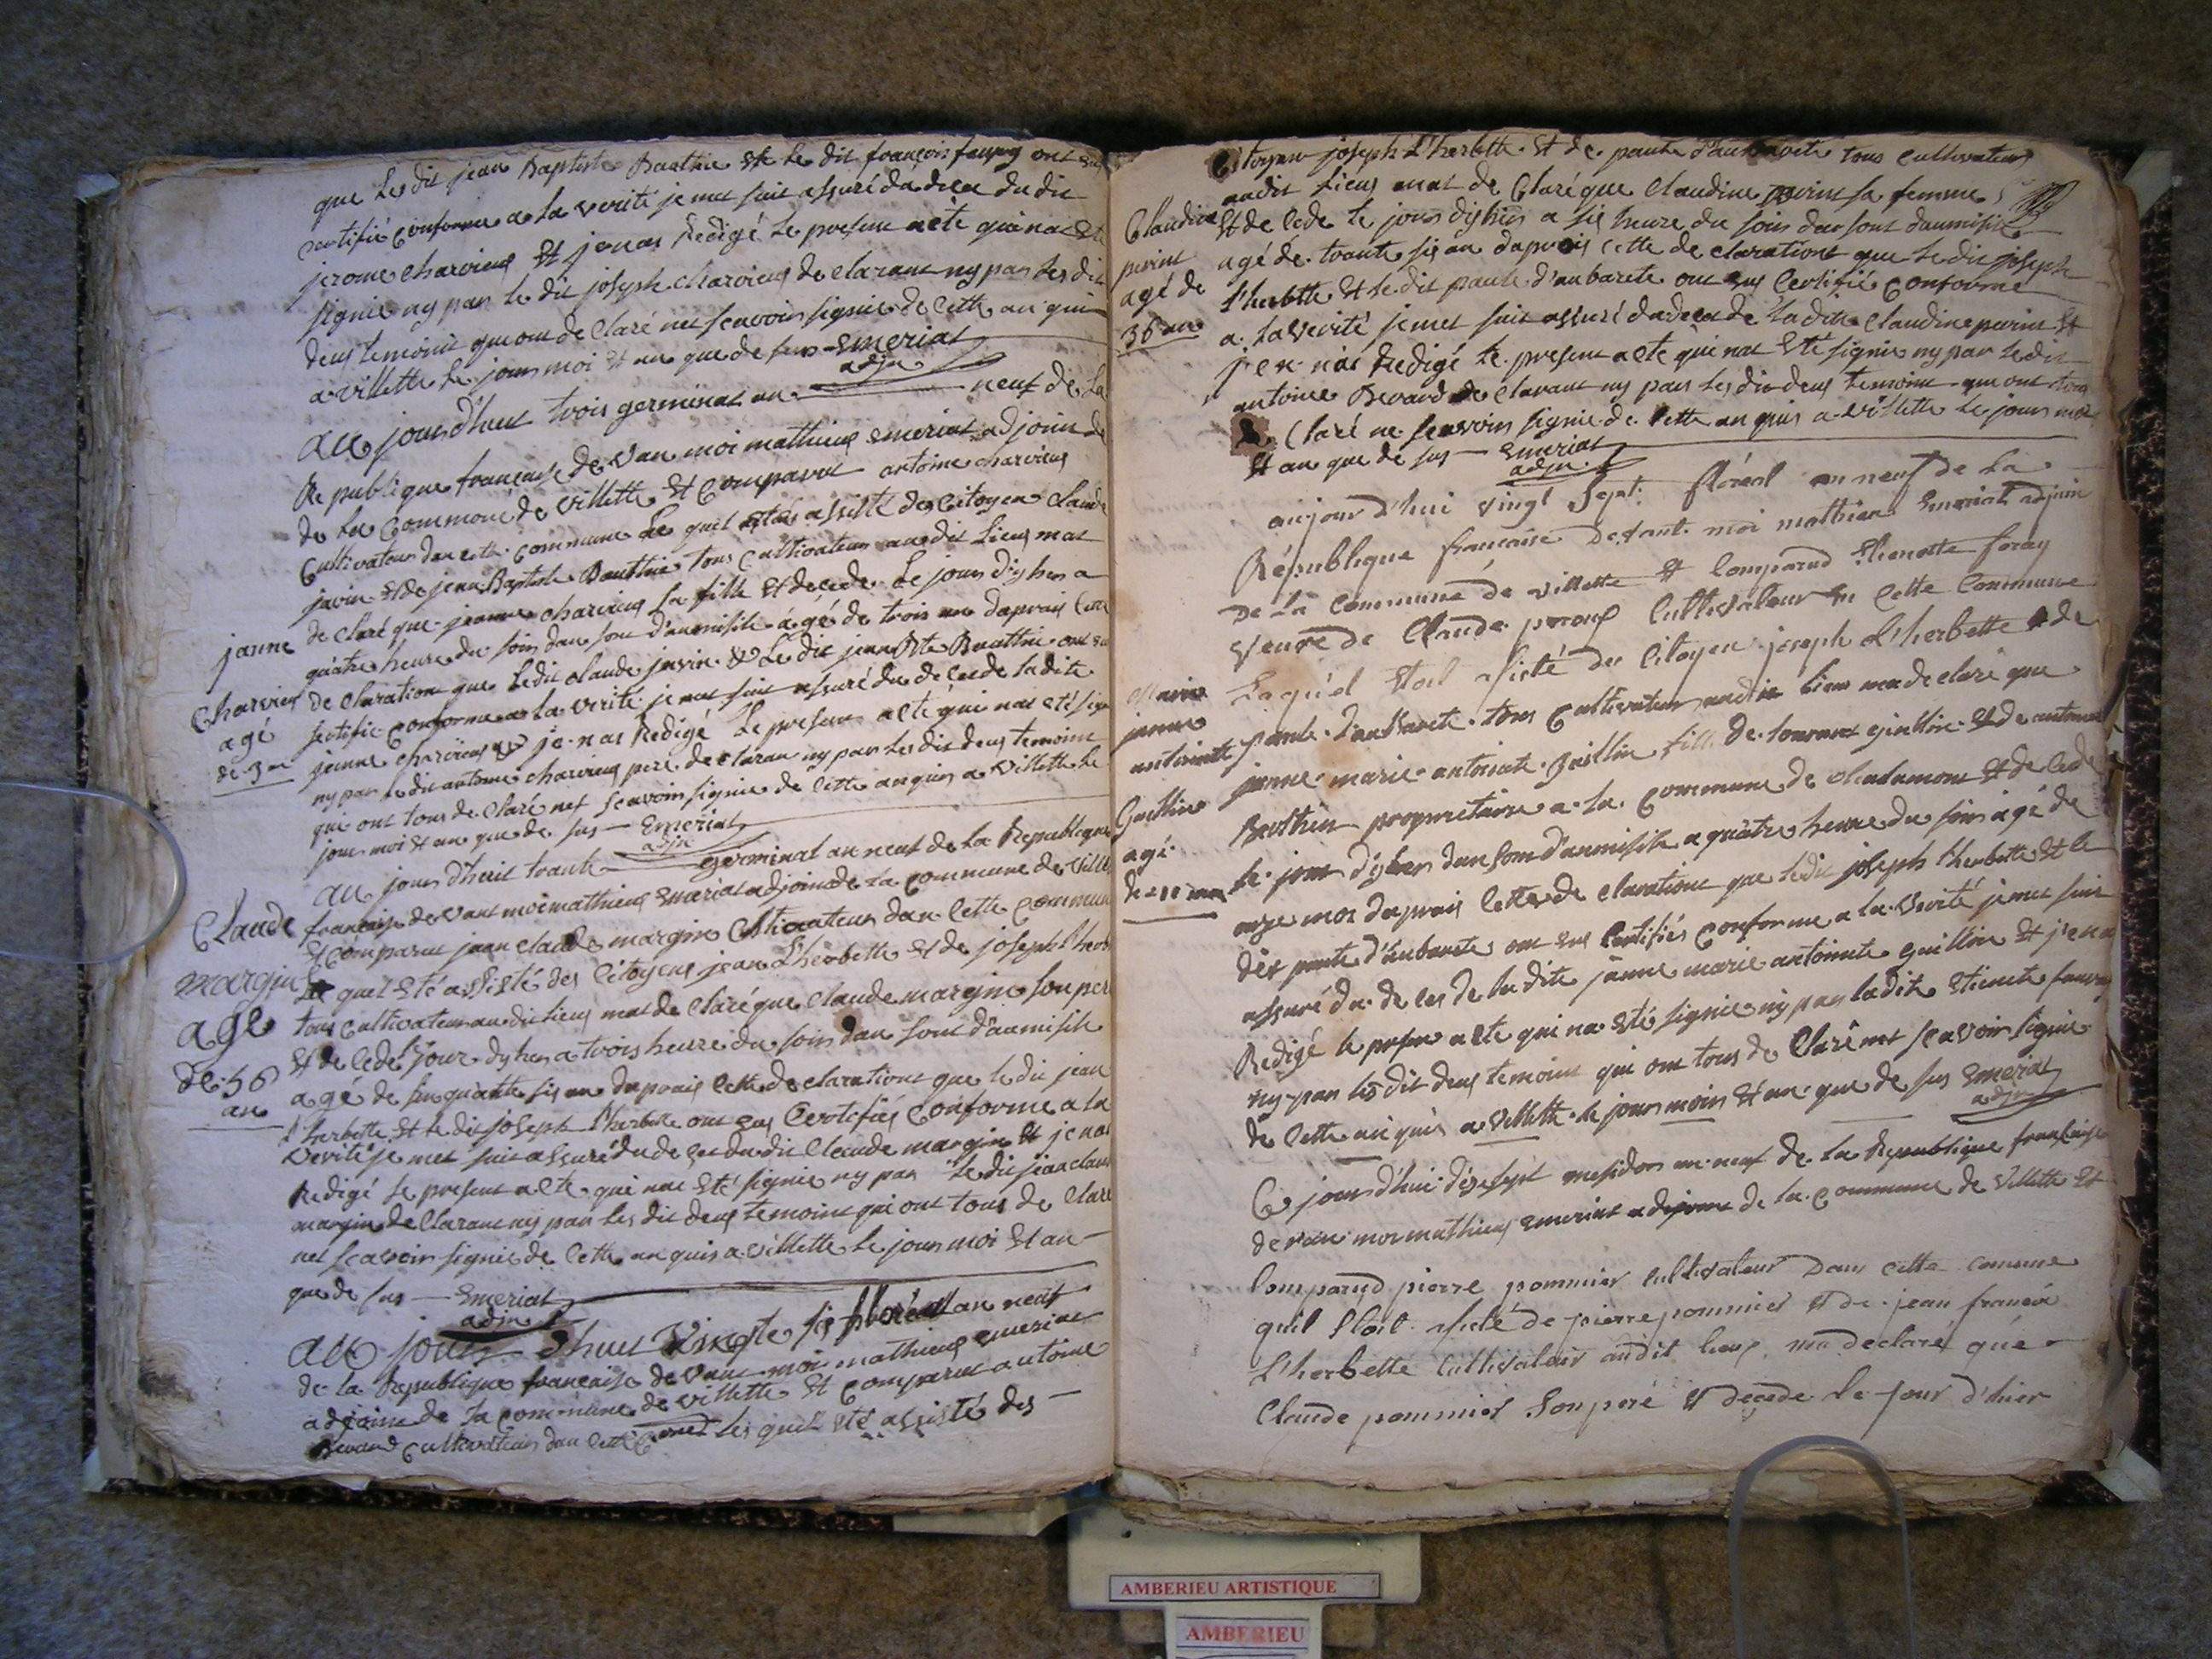 que le dit jean Baptiste Barthie et le dit françois fauvry ont eus
certifié conforme a la verité je met suit assuré du deces du dit
jerome charvieus et je nas Redigé le present acte qui nat eté
signie ny par le dit joseph charvieus de clarant ny par les dit
deus temoint qui ont de claré net scavoir signie de cette an qui
a villette le jour moi et an que de sus Emeriat
adjn
au jour dhuit trois germinat an neuf de la
Republique française de van moi mathieus emeriat adjoint de
de la commone de villette et comparut antoine charvieus
Cultivateur dan cette commune Le quel etté assisté des Citoyen claude
javin et de jean Baptiste Barthie tous cultivateur au dit Lieus mat
de claré que jeanne charvieus sa fille et de cede Le jour dyher a
quatre heure du soir dan son d'aumisile agé de trois an daprais cette
de claration que le dit claude javin et le dit jean Bte Barthie ont eu
sertifie conforme a la verité je met suit assuré du de cede la dite
jeanne charvieus et je nas Redigé Le present acte qui nat eté signie
ny par le dit antoine charvieus pere de claran ny par les dit deus temoint
qui ont tous de claré net scavoir signie de cette an quis a villette le
jour moi et an que de sus Emeriat
adjn
janne
charvieu
agé
de 3 an
au jour dheuit trante germinat an neuf de la Republique
française de vant moi mathieus emeriat adjoin de la commune de villette
et comparut jean claude margin Cultivateur dan cette commun
Le quel eté assisté des Citoyens jean L'herbette et de joseph l'herb
tous cultivateur au dit lieus mat de claré que claude margin son pere
et de cede le jour dyher a trois heure du soir dan sont d'aumisile
agé de sinquante sis an daprais cette de claration que le dit jean
l'herbette et le dit joseph l'herbette ont eus Certifiés conforme a la
verité je met suit assuré du de ces du dit claude margin et je nas
Redigé le present acte qui nat eté signie ny par le dit jean claude
margin de clarant ny par les dit deus temoint qui ont tous de claré
net scavoir signie de cette an quis a villette le jour moi et an
que de sus Emeriat
adjn
Claude
margin
agé
de 56
an
au jour dhuit vingte sis floréal an neuf
de la Republique française de vant moi mathieus emeriat
adjoint de la commune de villette et comparut antoine
Revard cultivateur dan cette Comet Les quel eté assisté des
Citoyen joseph L'herbette et de paute d'aubarete tous cultivateur
audit Lieus mat de Claré que Claudine perint sa femme
Et de Cede le jour dyhier a sis heure du soir dan sont daumisile
agé de trante sis an daprais cette de claration que le dit joseph
l'herbette et le dit paute d'aubarete ont eus Certifié conforme
a la verité je met suit assuré du deces de la dite Claudine perint et
jen nas Redigé le present acte qui nat eté signie ny par le dit
antoine Revard de clarant ny par les dit deus temoint qui ont tous
de Claré ne scavoir signie de cette an quis a villette le jour moi
Et an que de sus Emeriat
adjn
Claudine
perint
agé de
36 an
aujour d'hui vingt sept floréal an neuf de la
République française devant moi mathieu Emeriat adjoin
De la commune de villette et comparud Etienette foray
veuve de Claude peroup Cultivateur en cette commune
Laquel etoit assisté du citoyen joseph L'herbette et de
paute daubarete tous cultivateur audit lieus ma declaré que
janne marie antoinate Guillin fille de lourant Guillin et de antoinate
Berthier proprietaire a la commune de chadamont et de cede
le jour dyher dan son d'aumisile a quatre heure du soir agé de
onze moi daprais cette de claration que le dit joseph l'herbette et le
dit paute d'aubarete ont eus Certifiés conforme a la verité je met suit
assuré du de ces de la dite janne marie antoinate guillin et je nas
Redigé le present acte qui na eté signie ny par la dite Etienete fauray
ny par les dit deus temoint qui ont tous de Claré net scavoir signie
de cette an quis a villette le jour moin et an que de sus Emeriat
adjn
Marie
janne
antoinatte
Guillin
agé
de 11 moi
Ce jour d'hui dixesept mesidor an neuf de la Republique française
devan moi mathieus emeriat adejoint de la commune de Villette et
comparud pierre pommier cultivateur Dans cette comune
quel etoit assisté de pierre pommier et de jean francoi
L'herbette cultivateur audit lieus ma declaré que
Claude pommier son pere et decede le jour d'hier
AMBERIEU ARTISTIQUE
AMBERIEU